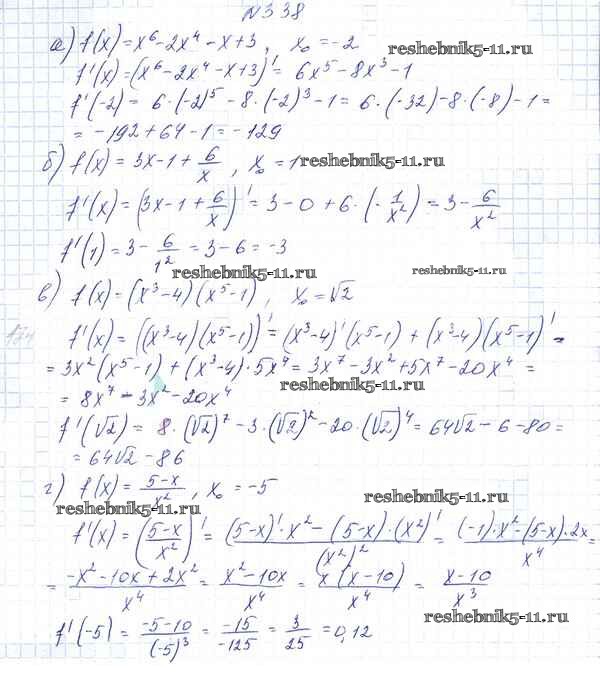 N338
а) f(x) = x⁶ - 2x⁴ - x + 3, x₀ = -2
reshebnik5-11.ru
f'(x) = (x⁶ - 2x⁴ - x + 3)' = 6x⁵ - 8x³ - 1
f'(-2) = 6·(-2)⁵ - 8·(-2)³ - 1 = 6·(-32) - 8·(-8) - 1 =
= -192 + 64 - 1 = -129
б) f(x) = 3x - 1 + 6/x, x₀ = 1
reshebnik5-11.ru
f'(x) = (3x - 1 + 6/x)' = 3 - 0 + 6·(-1/x²) = 3 - 6/x²
f'(1) = 3 - 6/1² = 3 - 6 = -3
reshebnik5-11.ru
reshebnik5-11.ru
в) f(x) = (x³ - 4)(x⁵ - 1), x₀ = √2
f'(x) = ((x³ - 4)(x⁵ - 1))' = (x³ - 4)'(x⁵ - 1) + (x³ - 4)(x⁵ - 1)' =
= 3x²(x⁵ - 1) + (x³ - 4)·5x⁴ = 3x⁷ - 3x² + 5x⁷ - 20x⁴ =
= 8x⁷ - 3x² - 20x⁴
reshebnik5-11.ru
f'(√2) = 8·(√2)⁷ - 3·(√2)² - 20·(√2)⁴ = 64√2 - 6 - 80 =
= 64√2 - 86
г) f(x) = (5-x)/x², x₀ = -5
reshebnik5-11.ru
reshebnik5-11.ru
f'(x) = ((5-x)/x²)' = ((5-x)'·x² - (5-x)·(x²)')/(x²)² = ((-1)·x² - (5-x)·2x)/x⁴ =
= (-x² - 10x + 2x²)/x⁴ = (x² - 10x)/x⁴ = x(x-10)/x⁴ = (x-10)/x³
reshebnik5-11.ru
f'(-5) = (-5-10)/(-5)³ = -15/-125 = 3/25 = 0,12